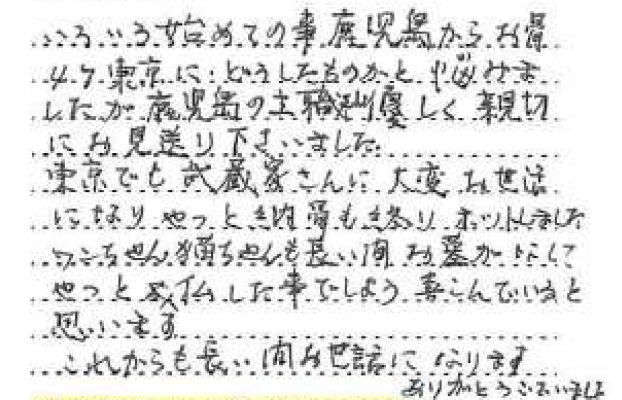 いろいろ始めての事鹿児島からお骨
東京に、どうしたものかと悩みま
したが鹿児島の主 優しく親切
にお見送り下さいました
東京でも武蔵家さんに大変お世話
になりやっと納骨も終りホットしました
ワンちゃん猫ちゃんも長い間お墓が
やっと成仏した事でしょう喜こんでいると
思います
これからも長い間お世話になります
ありがとうございました